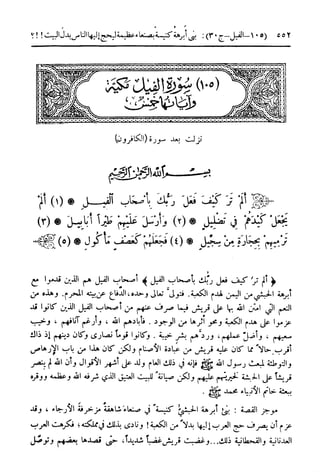 ٥٥٢ (١٠٥-الفيل-ج٣٠): بنى أبرهة كنيسة بصنعاء عظيمة ليحج إليها الناس بدل البيت !!؟
(١٠٥) سورة الفيل مكية
وآياتها خمس
نزلت بعد سورة (الكافرون)
بسم الله الرحمن الرحيم
ألم تر كيف فعل ربك بأصحاب الفيل * (١) ألم
يجعل كيدهم في تضليل * (٢) وأرسل عليهم طيرا أبابيل * (٣)
ترميهم بحجارة من سجيل * (٤) فجعلهم كعصف مأكول * (٥)
﴿ ألم تر كيف فعل ربك بأصحاب الفيل ﴾ أصحاب الفيل هم الذين قدموا مع
أبرهة الحبشي من اليمن لهدم الكعبة. فتولى تعالى وحده، الدفاع عن بيته المحرم. وهذه من
النعم التي امتن الله بها على قريش فيما صرف عنهم من أصحاب الفيل الذين كانوا قد
عزموا على هدم الكعبة ومحو أثرها من الوجود. فأبادهم الله ، وأرغم آنافهم ، وخيب
سعيهم ، وأضل عملهم، وردهم بشر خيبة . وكانوا قوماً نصارى وكان دينهم إذ ذاك
أقرب حالاً مما كان عليه قريش من عبادة الأصنام ولكن كان هذا من باب الإرهاص
والتوطئة لمبعث رسول الله ﷺ فإنه في ذلك العام ولد على أشهر الأقوال وأن الله لم ينصر
قريشاً على الحبشة لخيريتهم عليهم ولكن صيانة للبيت العتيق الذي شرفه الله وعظمه ووقره
ببعثة خاتم الأنبياء محمد ﷺ .
موجز القصة : بنى أبرهة الحبشي كنيسة في صنعاء شاهقة مزخرفة الأرجاء ، وقد
عزم أن يصرف حج العرب إليها بدلاً من الكعبة ! ونادى بذلك في مملكته، فكرهت العرب
العدنانية والقحطانية ذلك... وغضبت قريش غضباً شديداً، حتى قصدها بعضهم وتوصل